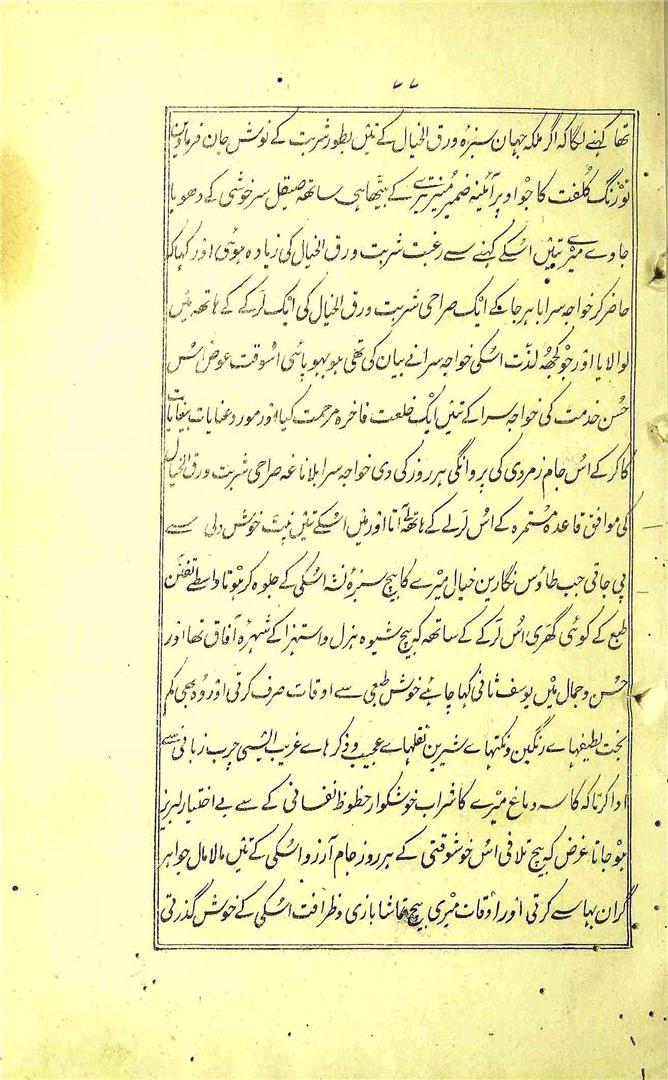 ۷۷
تھا کہنے لگا کہ اگر ملکہ جہان سبزہ ورق الخیال کے تئیں بطور شربت کے نوش جان فرماوین
تو زنگ کلفت کا جو اوپر آئینہ ضمیر منیر تیرے کے بیٹھا ہی ساتھ صیقل سرخوشی کے دھویا
جاوے میرے تئیں اسکے کہنے سے رغبت شربت ورق الخیال کی زیادہ ہوئی اور کہا کہ
حاضر کر خواجہ سرا باہر جا کے ایک صراحی شربت ورق الخیال کی ایک لڑکے کے ہاتھ میں
لوا لایا اور جو کچھ لذت اسکی خواجہ سرا نے بیان کی تھی ہو بہو پائی اسوقت عوض اس
حسن خدمت کی خواجہ سرا کے تئیں ایک خلعت فاخرہ مرحمت کیا اور مورد عنایات بیغایات
کا کر کے اس جام زمردی کی پروانگی ہر روز کی دی خواجہ سرا بلاناغہ صراحی شربت ورق الخیال
کی موافق قاعدہ مستمرہ کے اس لڑکے کے ہاتھ لے آتا اور میں اسکے تئیں نپٹ خوش دلی سے
پی جاتی جب طاؤس نگارین خیال میرے کا بیچ سبزہ نشہ اسکی کے جلوہ گر ہوتا واسطے تفنن
طبع کے کوئی گھڑی اس لڑکے کے ساتھ کہ بیچ شیوہ ہزل و استہزا کے شہرہ آفاق تھا اور
حسن و جمال میں یوسف ثانی کہا چاہئے خوش طبعی سے اوقات صرف کرتی اور وہ بھی کم
بخت لطیفہاے رنگین و نکتہاے شیرین نقلہاے عجیب و ذکرہاے غریب ایسی چرب زبانی سے
ادا کرتا کہ کاسہ دماغ میرے کا شراب خوشگوار حظوظ نفسانی کے سے بے اختیار لبریز
ہو جاتا غرض کہ بیچ تلافی اس خوشوقتی کے ہر روز جام آرزو اسکی کے تئیں مالا مال جواہر
گران بہا سے کرتی اور اوقات میری بیچ تماشا بازی و ظرافت اسکی کے خوش گذرتی